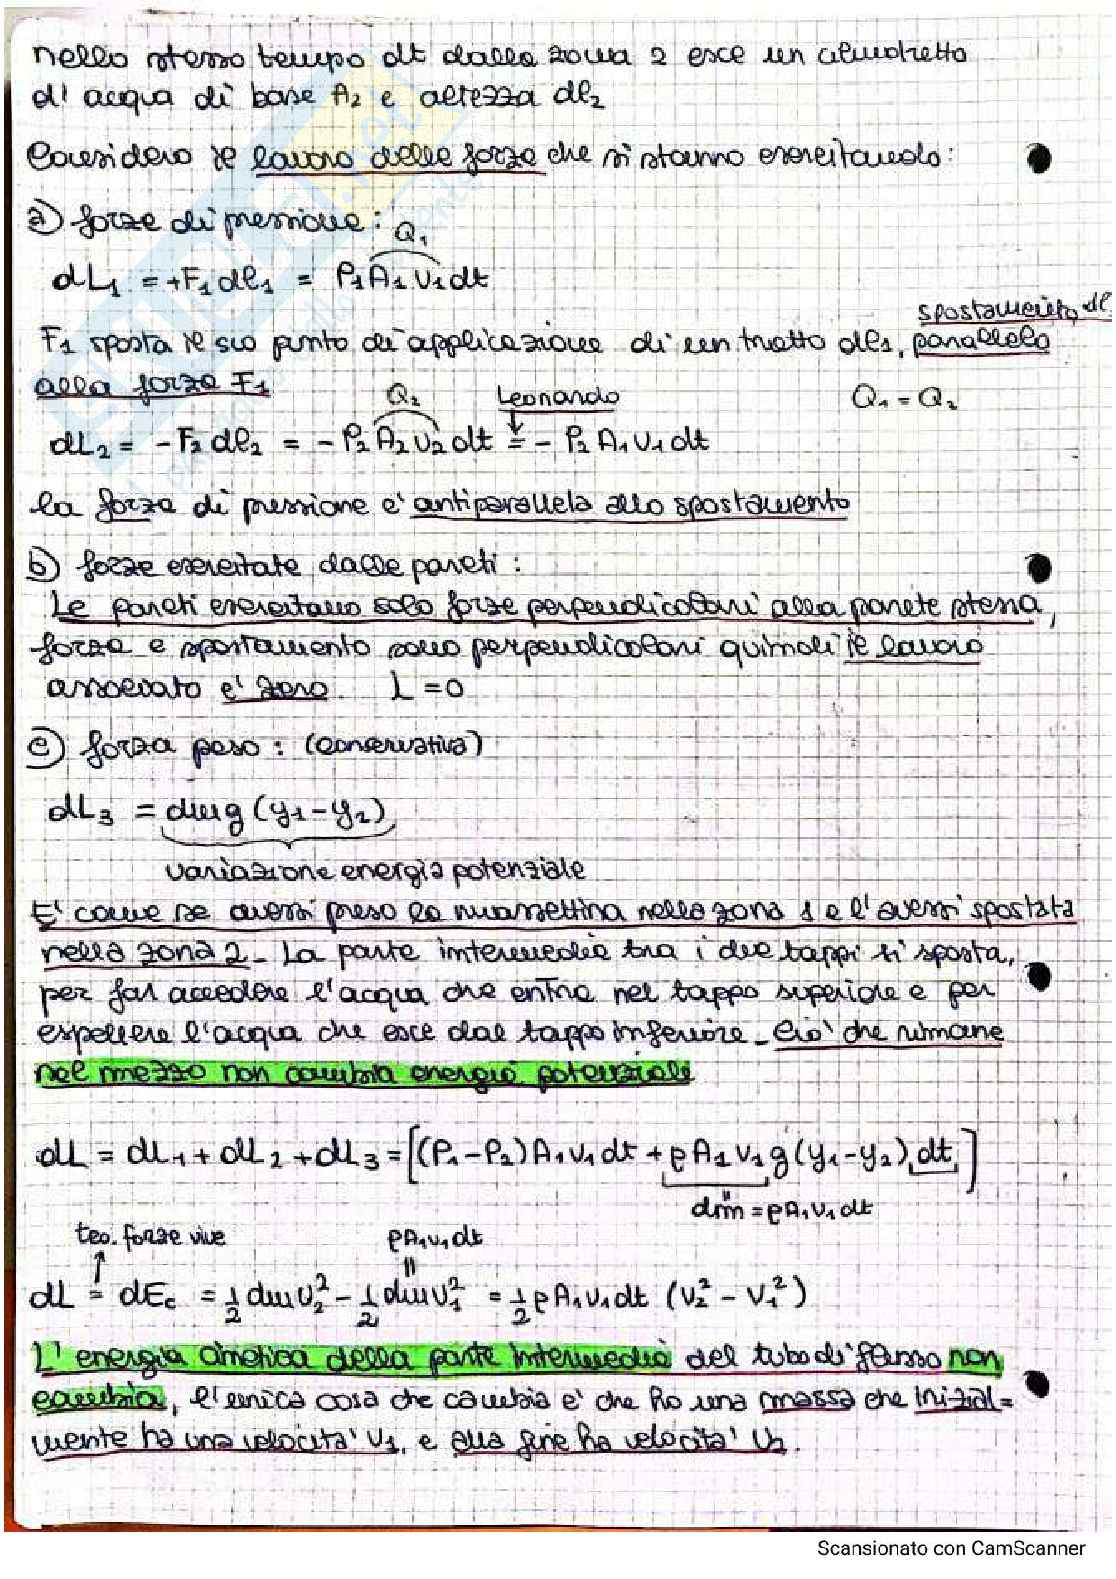 nello stesso tempo dt dalla zona 2 esce un cilindretto
d' acqua di base A₂ e altezza dl₂
Considero il lavoro delle forze che si stanno esercitando:
a) forze di pressione:
Q₁
dL₁ = +F₁ dl₁ = P₁A₁ v₁ dt
spostamento dl
F₁ sposta il suo punto di applicazione di un tratto dl₁, parallelo
alla forza F₁
Q₂ Leonardo Q₁ = Q₂
dL₂ = - F₂ dl₂ = - P₂ A₂ v₂ dt = - P₂ A₁ v₁ dt
la forza di pressione e' antiparallela allo spostamento
b) forze esercitate dalle pareti:
Le pareti esercitano solo forze perpendicolari alla parete stessa,
forza e spostamento sono perpendicolari quindi il lavoro
associato e' zero L = 0
c) forza peso: (conservativa)
dL₃ = dm g (y₁ - y₂)
variazione energia potenziale
E' come se avessi preso la massettina nella zona 1 e l'avessi spostata
nella zona 2_ La parte intermedia tra i due tappi si sposta,
per far accedere l'acqua che entra nel tappo superiore e per
espellere l'acqua che esce dal tappo inferiore_ Ciò che rimane
nel mezzo non cambia energia potenziale
dL = dL₁ + dL₂ + dL₃ = [(P₁ - P₂) A₁ v₁ dt + ρ A₁ v₁ g (y₁ - y₂) dt]
dm = ρ A₁ v₁ dt
teo. forze vive ρA₁v₁dt
dL = dEc = 1/2 dm v₂² - 1/2 dm v₁² = 1/2 ρ A₁ v₁ dt (v₂² - v₁²)
L' energia cinetica della parte intermedia del tubo di flusso non
cambia, l'unica cosa che cambia e' che ho una massa che inizial=
mente ha una velocita' v₁, e alla fine ha velocita' v₂.
Scansionato con CamScanner